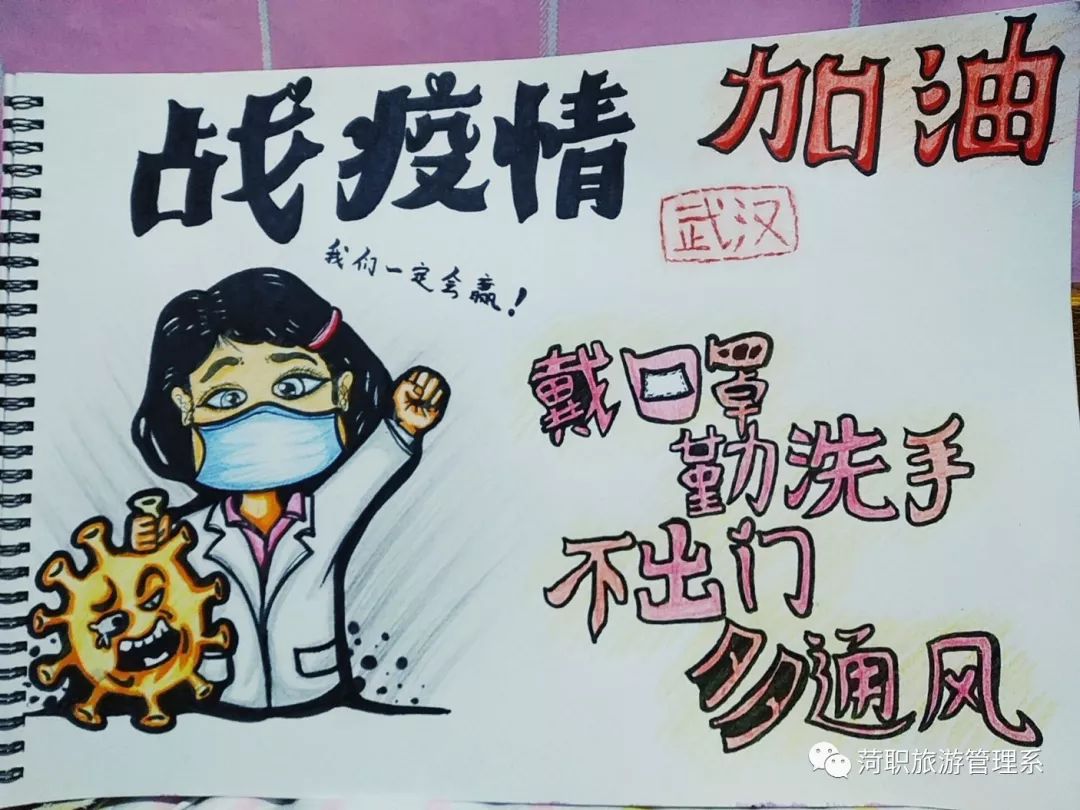 战疫情
加油
武汉
我们一定会赢！
戴口罩
勤洗手
不出门
多通风
菏职旅游管理系